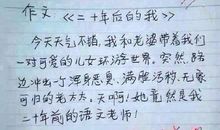 作文 《二十年后的我》
今天天气不错,我和老婆带着我们
一对可爱的儿女环游世界,突然,路
边冲出一个浑身恶臭、满脸污秽、无家
可归的老太太。天啊!她竟然是我
二十年前的语文老师!